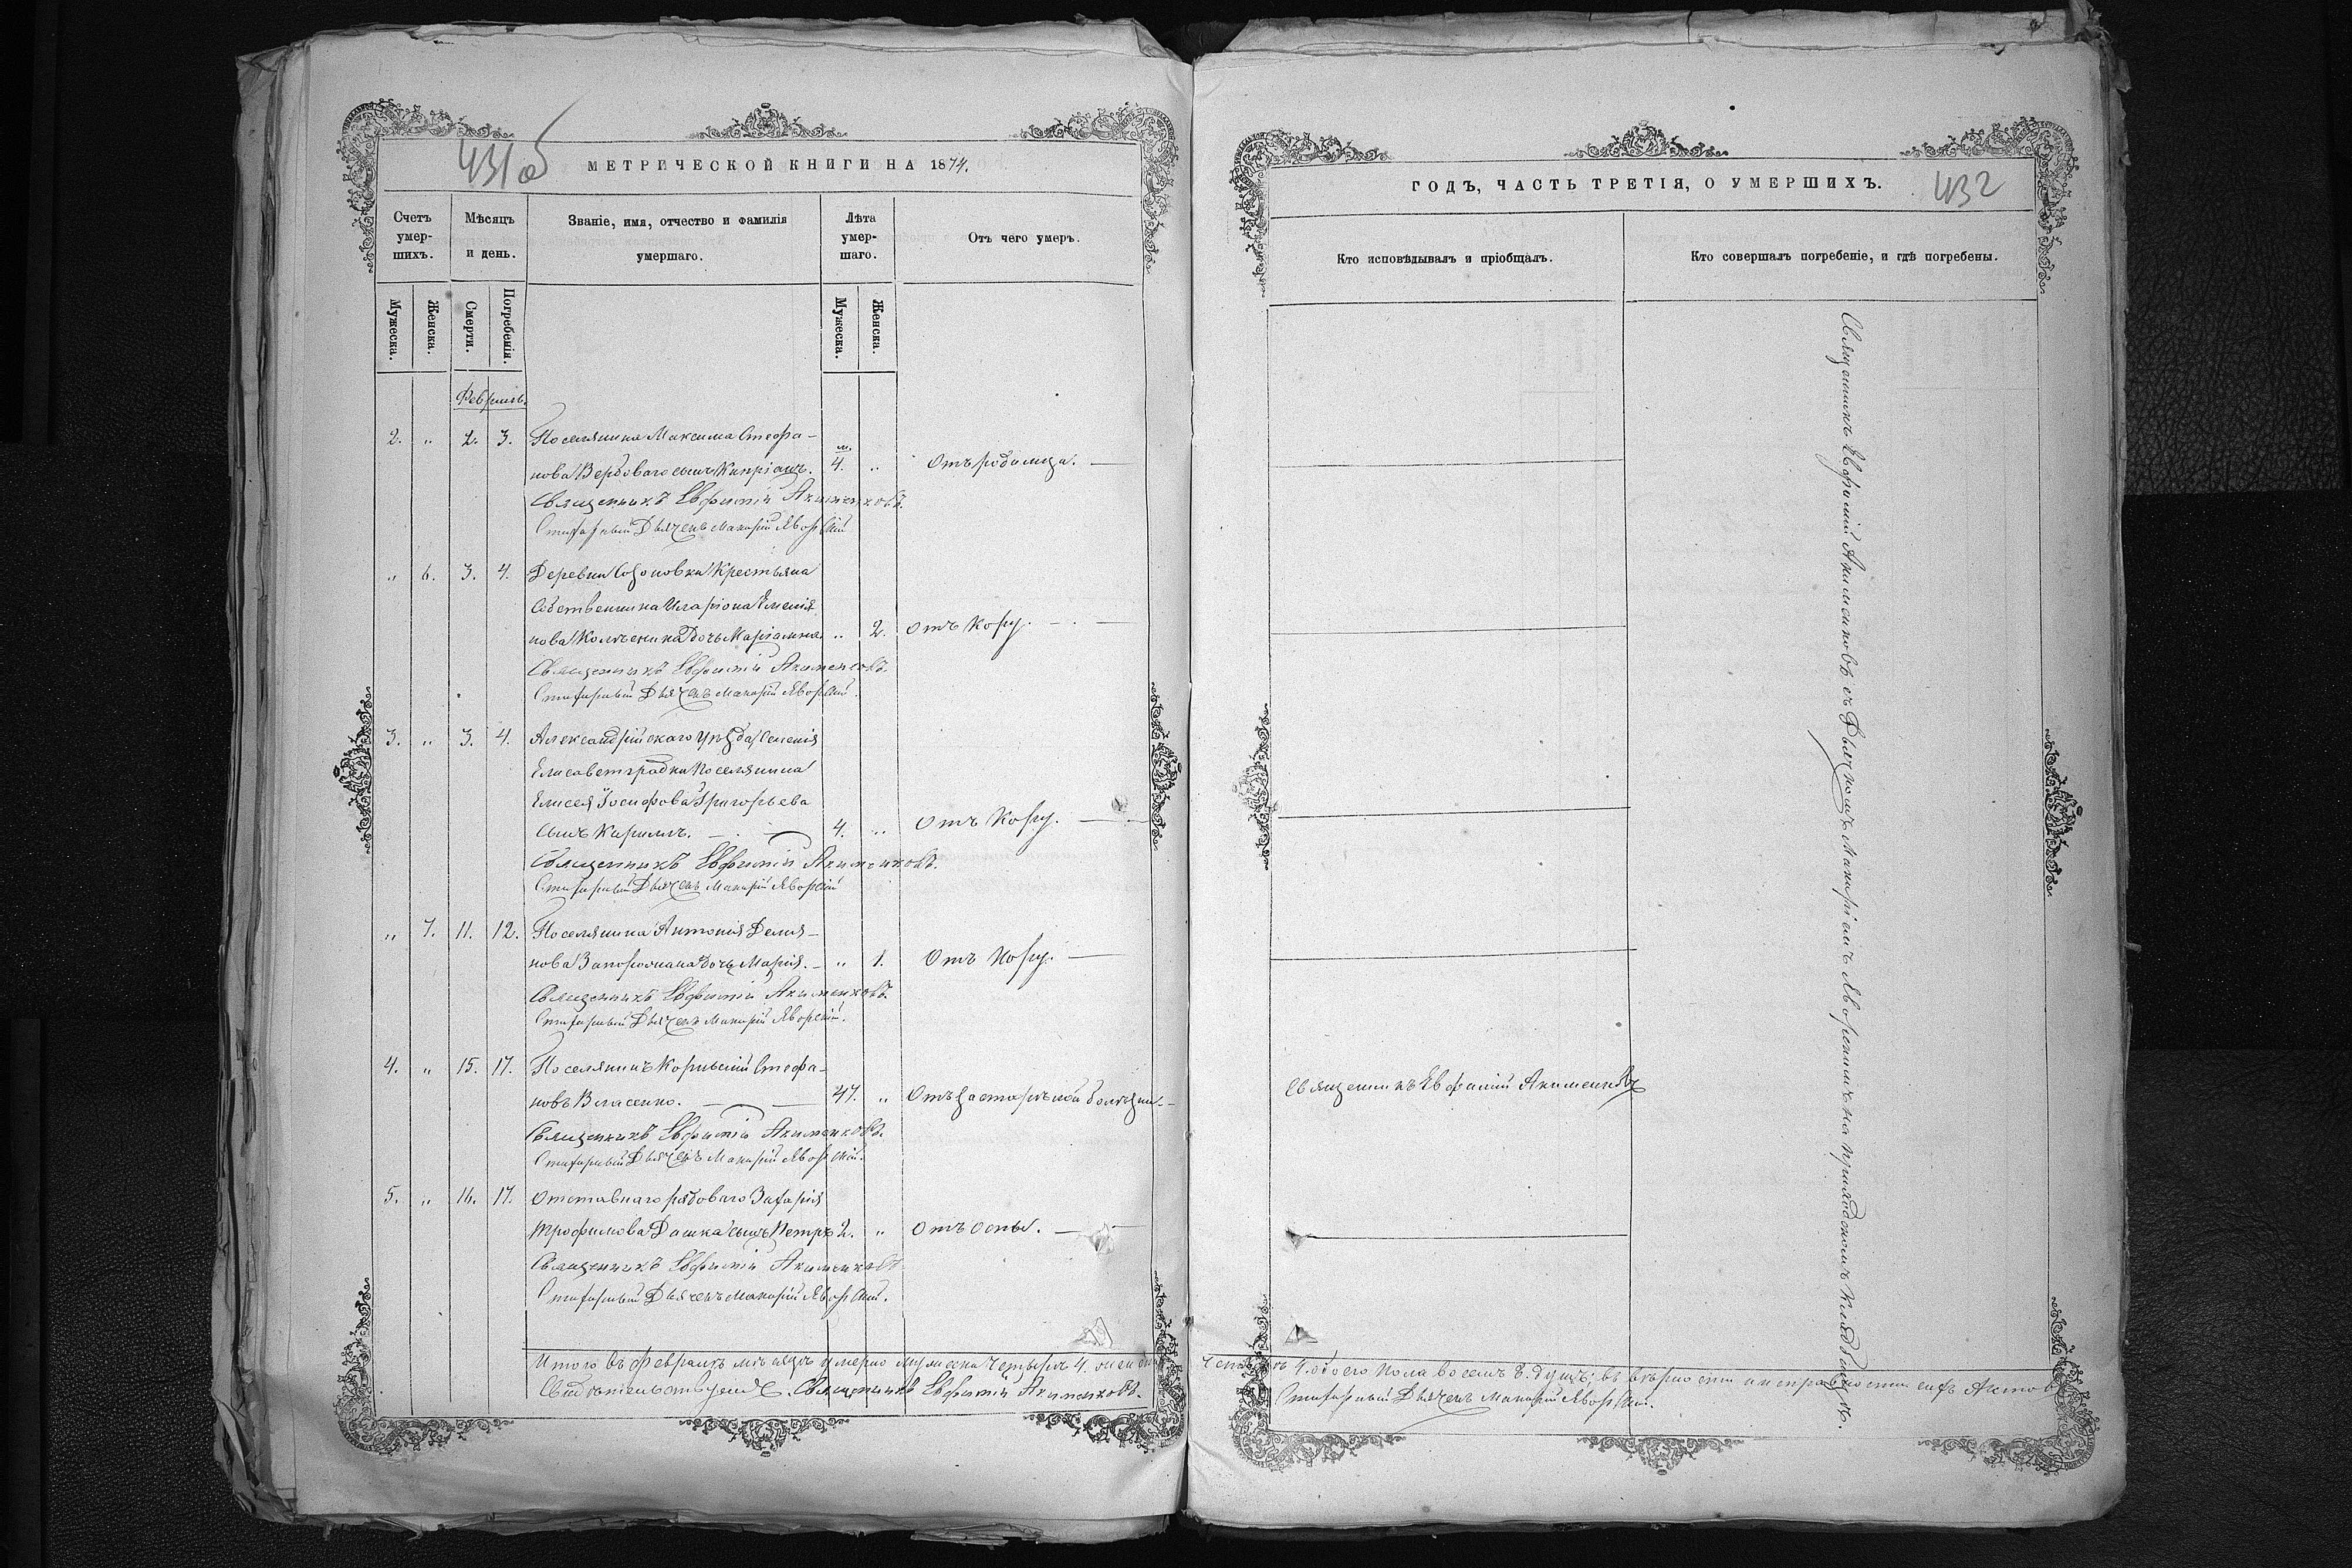 431 об
МЕТРИЧЕСКОЙ КНИГИ НА 1874.
Счетъ умер-шихъ.
Мѣсяцъ и день.
Званіе, имя, отчество и фамилія умершаго.
Лѣта умер-шаго.
Отъ чего умеръ.
Мужеска.
Женска.
Смерти.
Погребенія.
Мужеска.
Женска.
Февраль.
2. „ 2. 3. Поселянина Максима Стефа-
м.
нова Вербоваго сынъ Кипріанъ. 4. „ Отъ родимца.
Священникъ Евфимій Акименковъ.
Стихарный Дьячекъ Макарій Яворскій
„ 6. 3. 4. Деревни Крестьяна
Собственника Иларіона
нова дочь Маріамна. „ 2. Отъ Кору.
Священникъ Евфимій Акименковъ.
Стихарный Дьячекъ Макарій Яворскій.
3. „ 3. 4. Александрійскаго Уѣзда Селенія
Елисаветградки Поселянина
Елисея Іосифова Григорьева
сынъ Кириллъ. 4. „ Отъ Кору.
Священникъ Евфимій Акименковъ.
Стихарный Дьячекъ Макарій Яворскій
„ 7. 11. 12. Поселянина Антонія Демья-
нова дочь Марія. „ 1. Отъ Кору.
Священникъ Евфимій Акименковъ.
Стихарный Дьячекъ Макарій Яворскій.
4. „ 15. 17. Поселянинъ Корнилій Стефа-
новъ Власенко. 47. „ Отъ застарѣлой болѣзни.
Священникъ Евфимій Акименковъ.
Стихарный Дьячекъ Макарій Яворскій.
5. „ 16. 17. Отставнаго рядоваго Захарія
Трофимова Дашка сынъ Петръ 2. „ Отъ оспы.
Священникъ Евфимій Акименковъ
Стихарный Дьячекъ Макарій Яворскій.
Итого въ Февралѣ мѣсяцѣ умерло мужеска четыре 4.
Свидѣтельствуемъ. Священникъ Евфимій Акименковъ.
ГОДЪ, ЧАСТЬ ТРЕТІЯ, О УМЕРШИХЪ.
432
Кто исповѣдывалъ и пріобщалъ.
Кто совершалъ погребеніе, и гдѣ погребены.
Священникъ Евфимій Акименковъ
Священникъ Евфимій Акименковъ съ Дьячкомъ Макаріемъ Яворскимъ на приходскомъ кладбищѣ.
4. обоего пола восемь 8. душъ; въ вѣрности и исправности сихъ Актовъ
Стихарный Дьячекъ Макарій Яворскій.